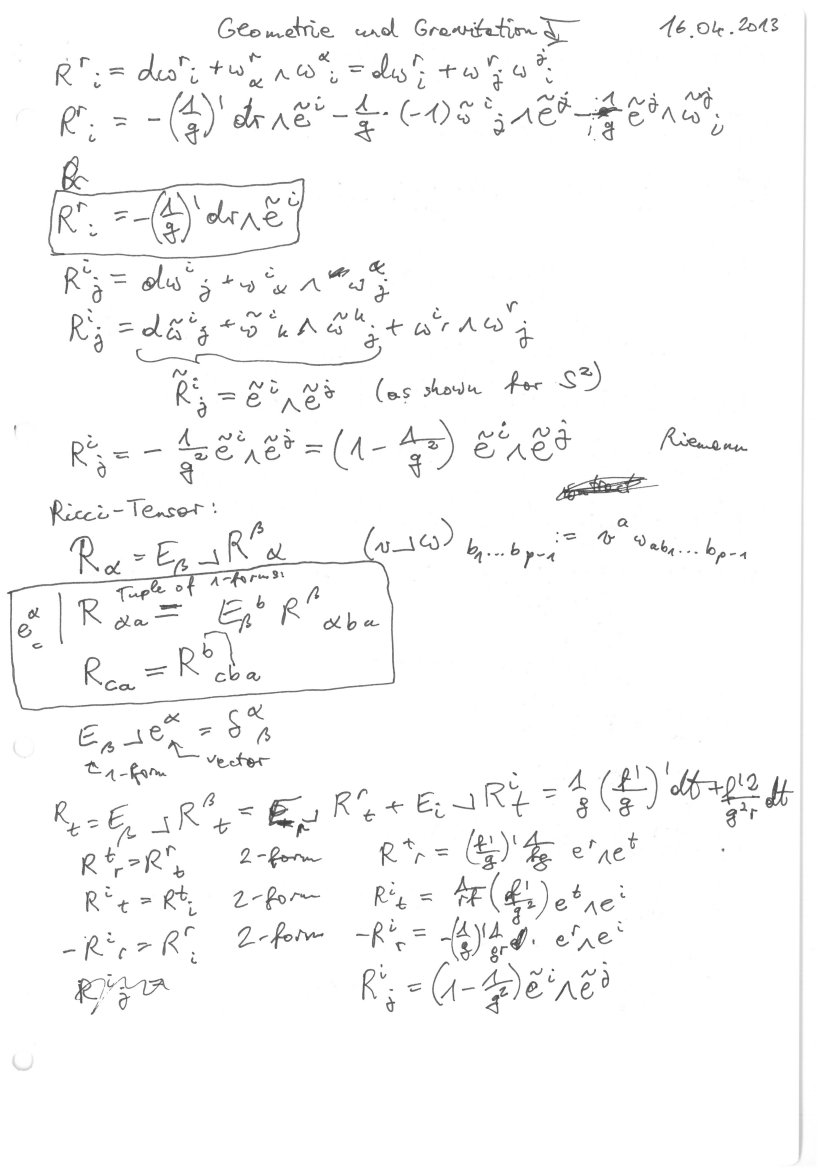 Geometrie und Gravitation I 16.04.2013
R^r_i = dω^r_i + ω^r_α ∧ ω^α_i = dω^r_i + ω^r_j ω^j_i
R^r_i = -(1/g)' dr ∧ ẽ^i - 1/g · (-1) ω̃^i_j ∧ ẽ^j - 1/g ẽ^j ∧ ω̃^j_i
R^r_i = -(1/g)' dr ∧ ẽ^i
R^i_j = dω^i_j + ω^i_α ∧ ω^α_j
R^i_j = dω̃^i_j + ω̃^i_k ∧ ω̃^k_j + ω^i_r ∧ ω^r_j
R̃^i_j = ẽ^i ∧ ẽ^j (as shown for S²)
R^i_j = - 1/g² ẽ^i ∧ ẽ^j = (1 - 1/g²) ẽ^i ∧ ẽ^j Riemann
Ricci-Tensor:
R_α = E_β ⌟ R^β_α (v ⌟ ω)_{b_1...b_{p-1}} := v^a ω_{ab_1...b_{p-1}}
Tuple of 1-forms:
e^α_c | R_{αa} = E_β^b R^β_{αba}
R_{ca} = R^b_{cba}
E_β ⌟ e^α = δ^α_β
1-form vector
R_t = E_β ⌟ R^β_t = E_r ⌟ R^r_t + E_i ⌟ R^i_t = 1/g (f'/g)' dt + f'2/(g²r) dt
R^t_r = R^r_t 2-form R^t_r = (f'/g)' 1/(fg) e^r ∧ e^t
R^i_t = R^t_i 2-form R^i_t = 1/(rf) (f'/g²) e^t ∧ e^i
-R^i_r = R^r_i 2-form -R^i_r = -(1/g)' 1/(gr) · e^r ∧ e^i
R^i_j = (1 - 1/g²) ẽ^i ∧ ẽ^j